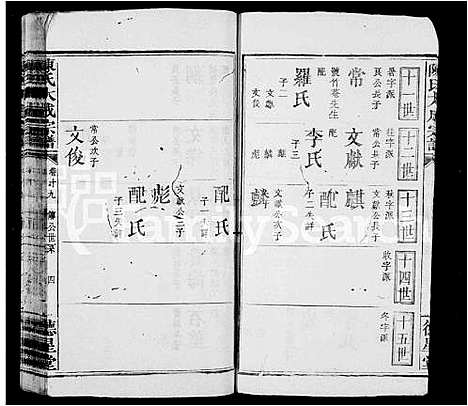 陳氏大成宗譜
十一世
暑字派
良公長子
常
號竹菴生
配
羅氏
子二
文獻
文俊
十二世
往字派
常公長子
文獻
配
李氏
子三
麒
彪
麟
十三世
秋字派
文獻公長子
麒
配氏
子二失詳
文獻公次子
麟
十四世
收字派
十五世
冬字派
德星堂
配氏
子一失詳
文獻公三子
彪
配氏
子三失詳
常公次子
文俊
陳氏大成宗譜
四
德星堂
FamilySearch